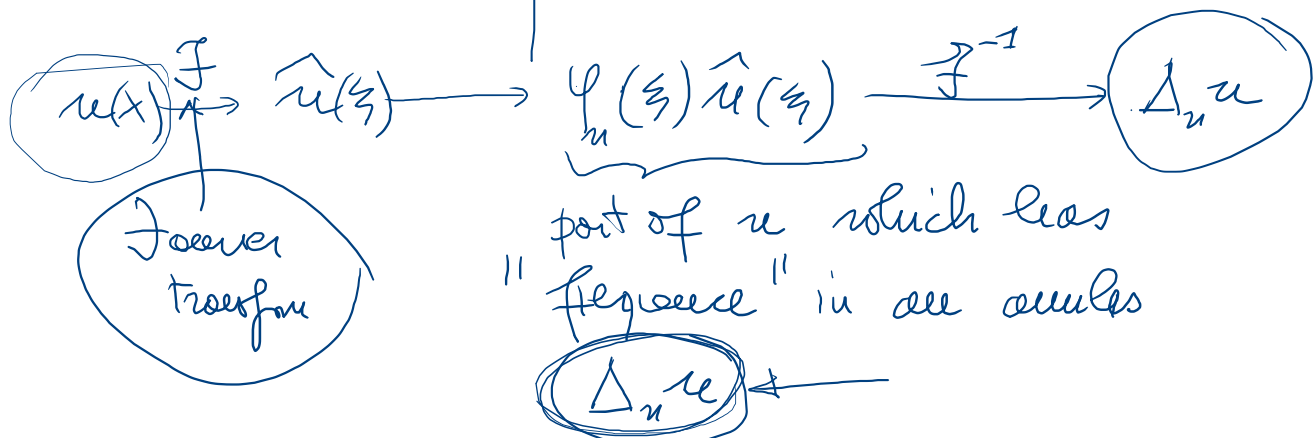 u(x) F→ û(ξ) → φₙ(ξ) û(ξ) F⁻¹→ Δₙ u
Fourier
transform
part of u which has
"frequence" in an annulus
Δₙ u ←